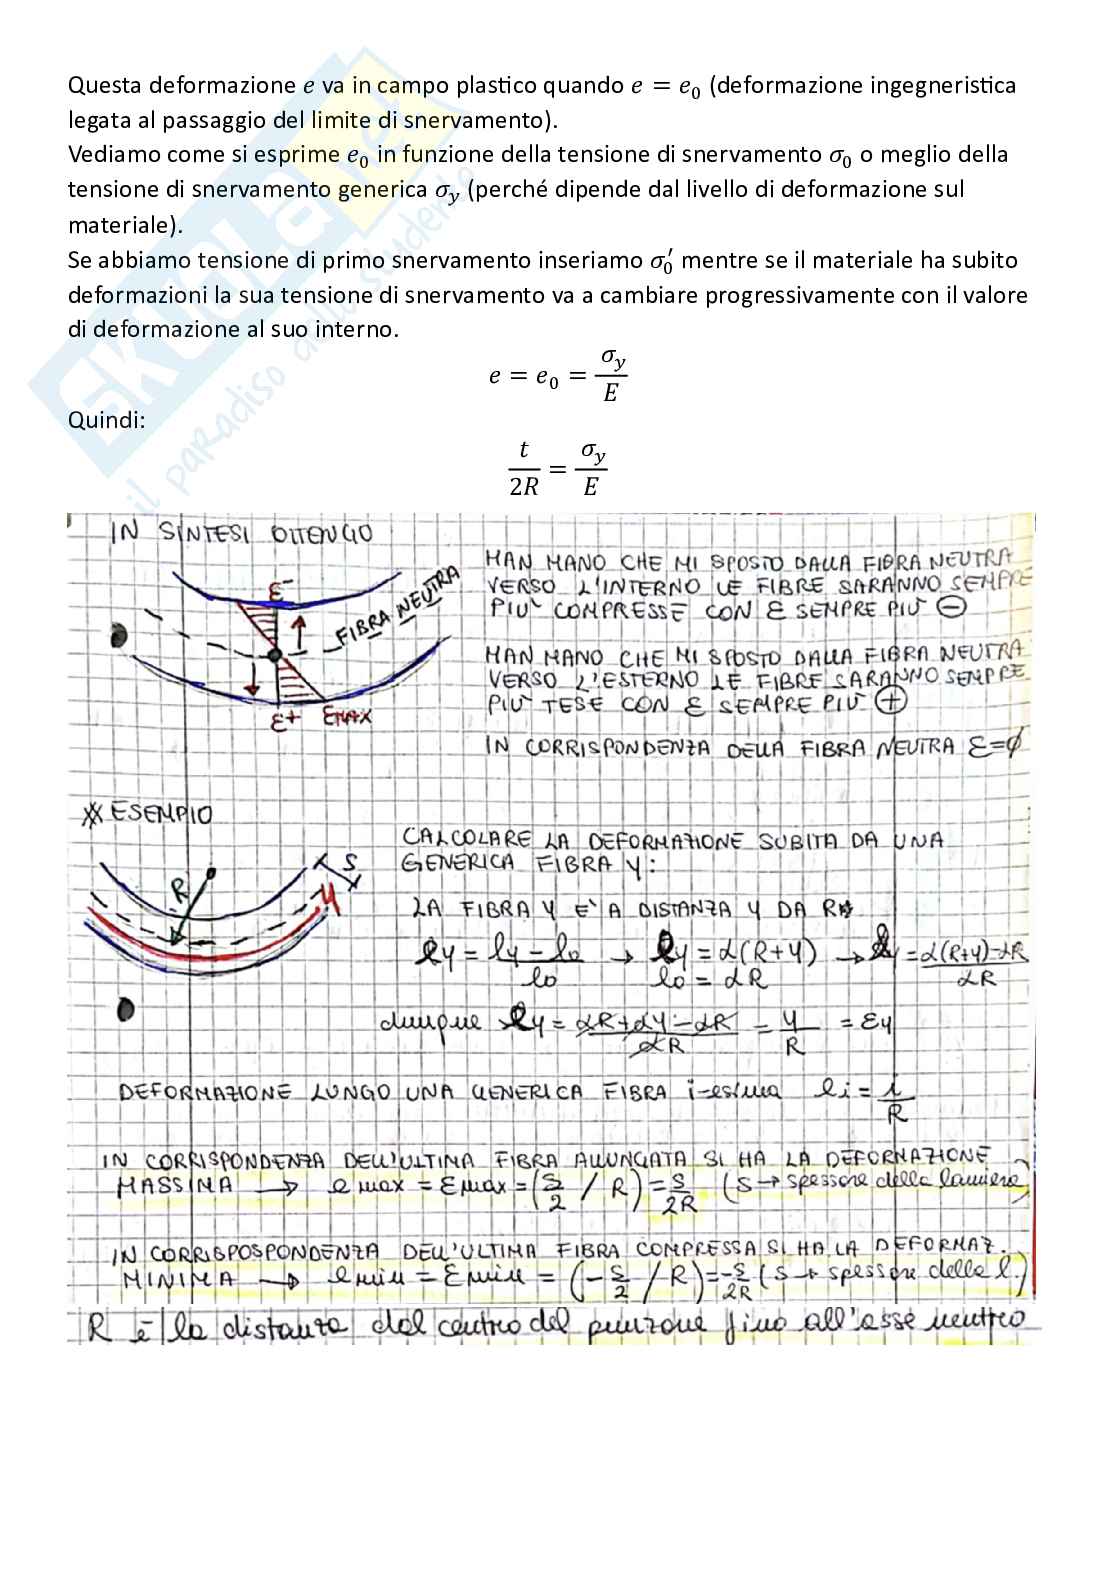 Questa deformazione e va in campo plastico quando e = e₀ (deformazione ingegneristica
legata al passaggio del limite di snervamento).
Vediamo come si esprime e₀ in funzione della tensione di snervamento σ₀ o meglio della
tensione di snervamento generica σ_y (perché dipende dal livello di deformazione sul
materiale).
Se abbiamo tensione di primo snervamento inseriamo σ₀′ mentre se il materiale ha subito
deformazioni la sua tensione di snervamento va a cambiare progressivamente con il valore
di deformazione al suo interno.
e = e₀ = σ_y / E
Quindi:
t / 2R = σ_y / E
SKUOLA.net
il paradiso dello studente
IN SINTESI OTTENGO
MAN MANO CHE MI SPOSTO DALLA FIBRA NEUTRA
VERSO L'INTERNO LE FIBRE SARANNO SEMPRE
PIÙ COMPRESSE CON ε SEMPRE PIÙ ⊖
ε-
FIBRA NEUTRA
MAN MANO CHE MI SPOSTO DALLA FIBRA NEUTRA
VERSO L'ESTERNO LE FIBRE SARANNO SEMPRE
PIÙ TESE CON ε SEMPRE PIÙ ⊕
ε+ εMAX
IN CORRISPONDENZA DELLA FIBRA NEUTRA ε=ϕ
ESEMPIO
CALCOLARE LA DEFORMAZIONE SUBITA DA UNA
GENERICA FIBRA Y:
R
S
Y
LA FIBRA Y E' A DISTANZA Y DA R
ey = ly - l0 / l0 → ly = α(R+Y) → ey = α(R+Y)-αR / αR
l0 = αR
dunque ey = αR+αY-αR / αR = Y / R = εy
DEFORMAZIONE LUNGO UNA GENERICA FIBRA i-esima ei = i / R
IN CORRISPONDENZA DELL'ULTIMA FIBRA ALLUNGATA SI HA LA DEFORMAZIONE
MASSIMA → e max = ε max = (S/2 / R) = S/2R (S → spessore della lamiera)
IN CORRISPOSPONDENZA DELL'ULTIMA FIBRA COMPRESSA SI HA LA DEFORMAZ.
MINIMA → e min = ε min = (-S/2 / R) = -S/2R (S → spessore delle l.)
R è la distanza dal centro del punzone fino all'asse neutro